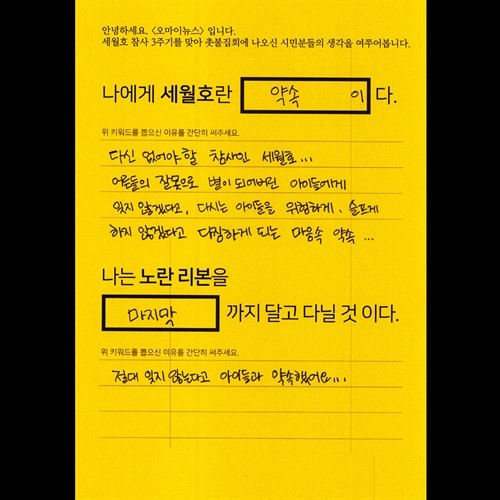 안녕하세요. 〈오마이뉴스〉 입니다.
세월호 참사 3주기를 맞아 촛불집회에 나오신 시민분들의 생각을 여쭈어봅니다.
나에게 세월호란 약속 이 다.
위 키워드를 뽑으신 이유를 간단히 써주세요.
다신 없어야 할 참사인 세월호...
어른들의 잘못으로 별이 되어버린 아이들에게
잊지 않겠다고, 다시는 아이들을 위험하게, 슬프게
하지 않겠다고 다짐하게 되는 마음속 약속 ...
나는 노란 리본을
마지막 까지 달고 다닐 것 이다.
위 키워드를 뽑으신 이유를 간단히 써주세요.
절대 잊지 않는다고 아이들과 약속했어요...